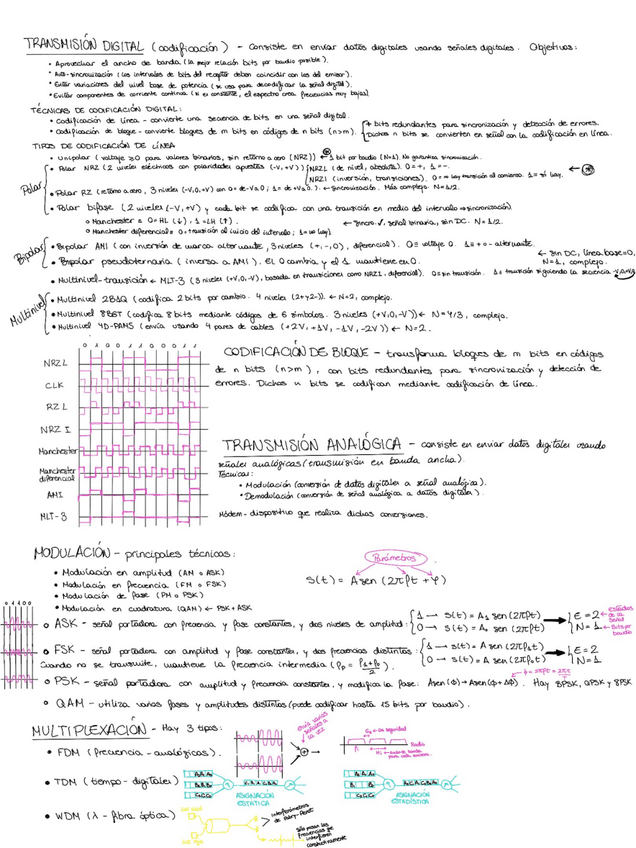 TRANSMISIÓN DIGITAL (codificación) - consiste en enviar datos digitales usando señales digitales. Objetivos:
• Aprovechar el ancho de banda (la mejor relación bits por baudio posible).
• Auto-sincronización (los intervalos de bits del receptor deben coincidir con los del emisor).
• Evitar variaciones del nivel base de potencia (se usa para decodificar la señal digital).
• Evitar componentes de corriente continua (si es constante, el espectro crea frecuencias muy bajas).
TÉCNICAS DE CODIFICACIÓN DIGITAL:
• Codificación de línea - convierte una secuencia de bits en una señal digital.
• Codificación de bloque - convierte bloques de m bits en códigos de n bits (n>m).
+ bits redundantes para sincronización y detección de errores.
Dichos n bits se convierten en señal con la codificación en línea.
TIPOS DE CODIFICACIÓN DE LÍNEA
• Unipolar (voltaje ≥0 para valores binarios, sin retorno a cero (NRZ)) ← 1 bit por baudio (N=1). No garantiza sincronización.
Polar
• Polar NRZ (2 niveles eléctricos con polaridades opuestas (-V,+V))
NRZL (de nivel, absoluta). 0=+, 1=-.
NRZI (inversión, transiciones). 0= no hay transición al comienzo. 1= sí hay.
• Polar RZ (retorno a cero, 3 niveles (-V,0,+V) con 0= de -V a 0; 1= de +V a 0.) ← sincronización. Más compleja. N=1/2.
• Polar bifase (2 niveles (-V,+V) y cada bit se codifica con una transición en medio del intervalo → sincronización)
o Manchester = 0=HL (↓), 1=LH (↑).
o Manchester diferencial = 0= transición al inicio del intervalo; 1= no hay
← sincro. ✓, señal binaria, sin DC. N=1/2.
Bipolar
• Bipolar AMI (con inversión de marca alternante, 3 niveles (+,-,0), diferencial). 0= voltaje 0. 1= + o - alternante.
• Bipolar pseudoternaria (inversa a AMI). El 0 cambia y el 1 mantiene en 0.
← sin DC, línea base=0, N=1, complejo.
Multinivel
• Multinivel-transición ← MLT-3 (3 niveles (+V,0,-V), basada en transiciones como NRZI, diferencial). 0= sin transición. 1= transición siguiendo la secuencia -V,0,+V,0
• Multinivel 2B1Q (codifica 2 bits por cambio. 4 niveles (2+y2-)). ← N=2, complejo.
• Multinivel 8B6T (codifica 8 bits mediante códigos de 6 símbolos. 3 niveles (+V,0,-V)) ← N=4/3, complejo.
• Multinivel 4D-PAM5 (envía usando 4 pares de cables (+2V, +1V, -1V, -2V)) ← N=2.
NRZ L
CLK
RZ L
NRZ I
Manchester
Manchester diferencial
AMI
MLT-3
CODIFICACIÓN DE BLOQUE - transforma bloques de m bits en códigos
de n bits (n>m), con bits redundantes para sincronización y detección de
errores. Dichos n bits se codifican mediante codificación de línea.
TRANSMISIÓN ANALÓGICA - consiste en enviar datos digitales usando
señales analógicas (transmisión en banda ancha).
Técnicas:
• Modulación (conversión de datos digitales a señal analógica).
• Demodulación (conversión de señal analógica a datos digitales).
Módem - dispositivo que realiza dichas conversiones.
MODULACIÓN - principales técnicas:
• Modulación en amplitud (AM o ASK)
• Modulación en frecuencia (FM o FSK)
• Modulación de fase (PM o PSK)
• Modulación en cuadratura (QAM) ← PSK + ASK
Parámetros
s(t) = A sen (2πft + φ)
o ASK - señal portadora con frecuencia y fase constantes, y dos niveles de amplitud:
1 → s(t) = A₁ sen (2πft)
0 → s(t) = A₀ sen (2πft)
E=2 ← estados de la señal
N=1 ← Bits por baudio
o FSK - señal portadora con amplitud y fase constantes, y dos frecuencias distintas:
1 → s(t) = A sen (2πf₁t)
0 → s(t) = A sen (2πf₀t)
E=2
N=1.
Cuando no se transmite, mantiene la frecuencia intermedia
o PSK - señal portadora con amplitud y frecuencia constantes, y modifica la fase: A sen (Φ) → A sen (Φ+ΔΦ). Hay BPSK, QPSK y 8PSK
o QAM - utiliza varias fases y amplitudes distintas (puede codificar hasta 15 bits por baudio).
MULTIPLEXACIÓN - Hay 3 tipos:
• FDM (frecuencia - analógicas).
Envía varias señales a la vez
• TDM (tiempo - digitales)
ASIGNACIÓN ESTÁTICA
ASIGNACIÓN ESTADÍSTICA
• WDM (λ - fibra óptica)
Interferómetros de Fabry-Perot
Sólo pasan las frecuencias que interfieren constructivamente